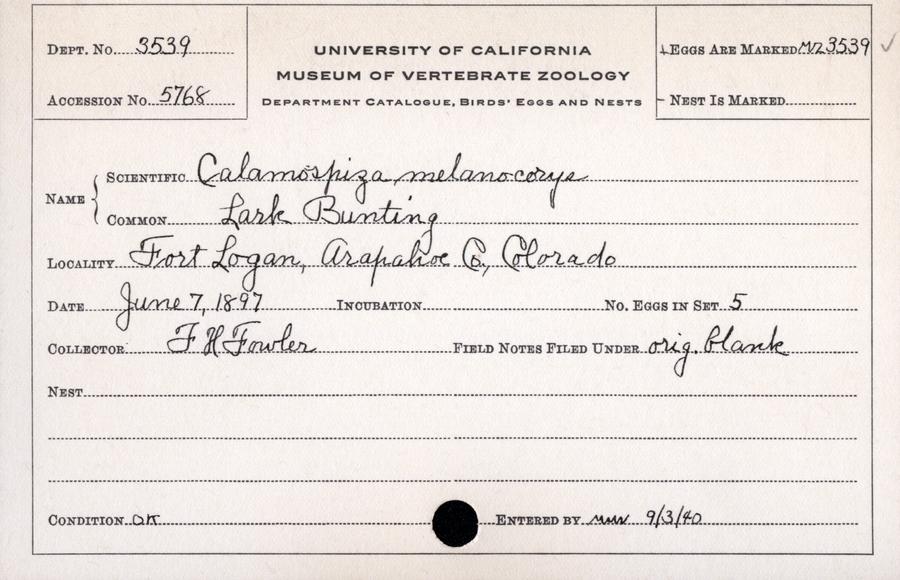 DEPT. No. 3539
UNIVERSITY OF CALIFORNIA
EGGS ARE MARKED MVZ3539 ✓
MUSEUM OF VERTEBRATE ZOOLOGY
ACCESSION No. 5768
DEPARTMENT CATALOGUE, BIRDS' EGGS AND NESTS
NEST IS MARKED
NAME
SCIENTIFIC Calamospiza melanocorys
COMMON Lark Bunting
LOCALITY Fort Logan, Arapahoe Co., Colorado
DATE June 7, 1897 INCUBATION No. EGGS IN SET 5
COLLECTOR F H Fowler FIELD NOTES FILED UNDER orig. blank
NEST
CONDITION OK ENTERED BY 9/3/40